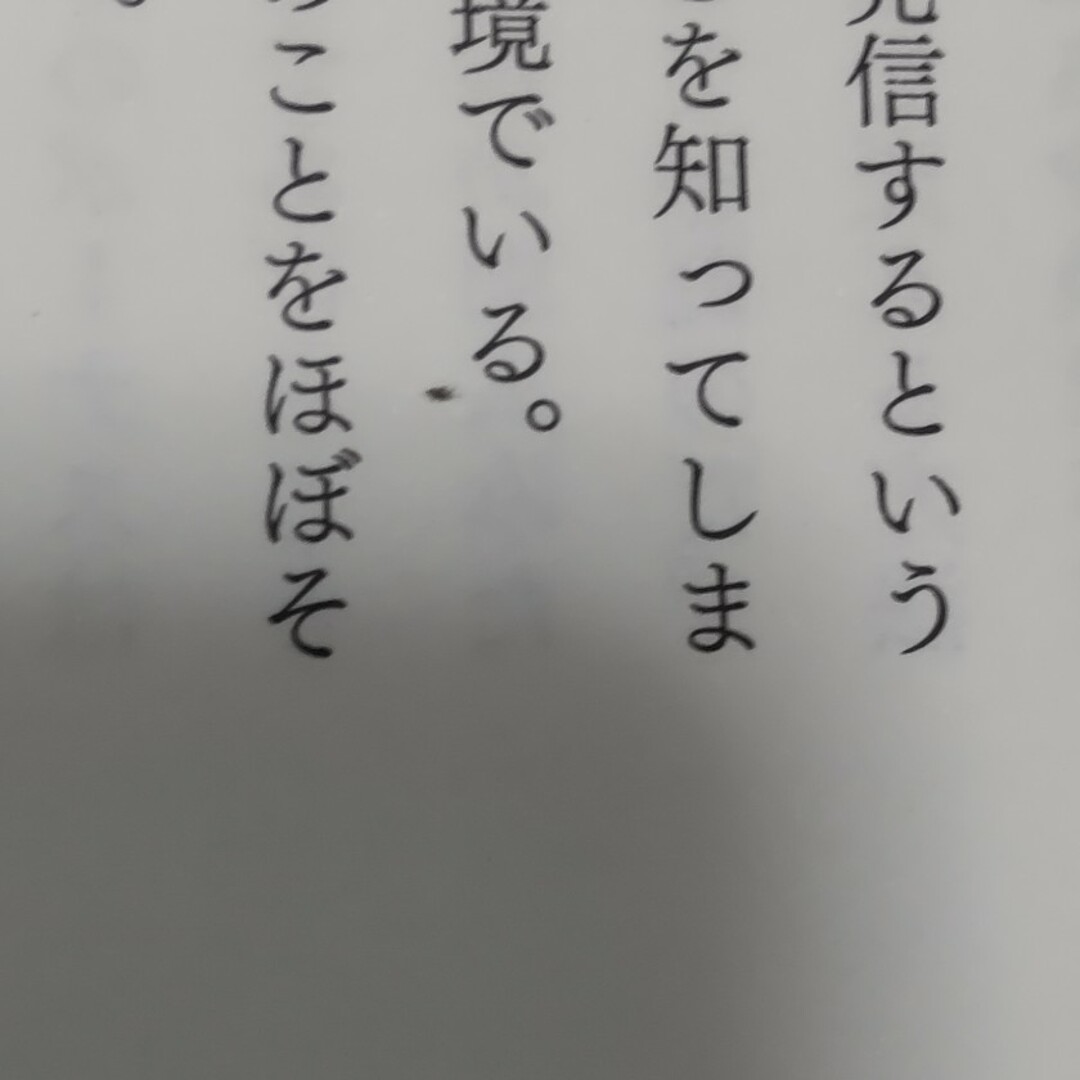 信するという
を知ってしま
境でいる。
ことをほぼそ
。